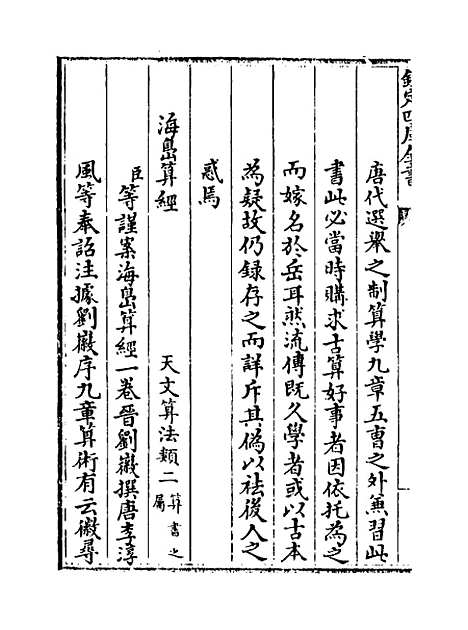 欽定四庫全書
唐代選舉之制算學九章五曹之外兼習此
書此必當時購求古算好事者因依托為之
而嫁名於岳耳然流傳既久學者或以古本
為疑故仍録存之而詳斥其偽以祛後人之
惑焉
海島算經 天文算法類二 算書之屬
臣等謹案海島算經一卷晉劉徽撰唐李淳
風等奉詔注據劉徽序九章算術有云徽尋